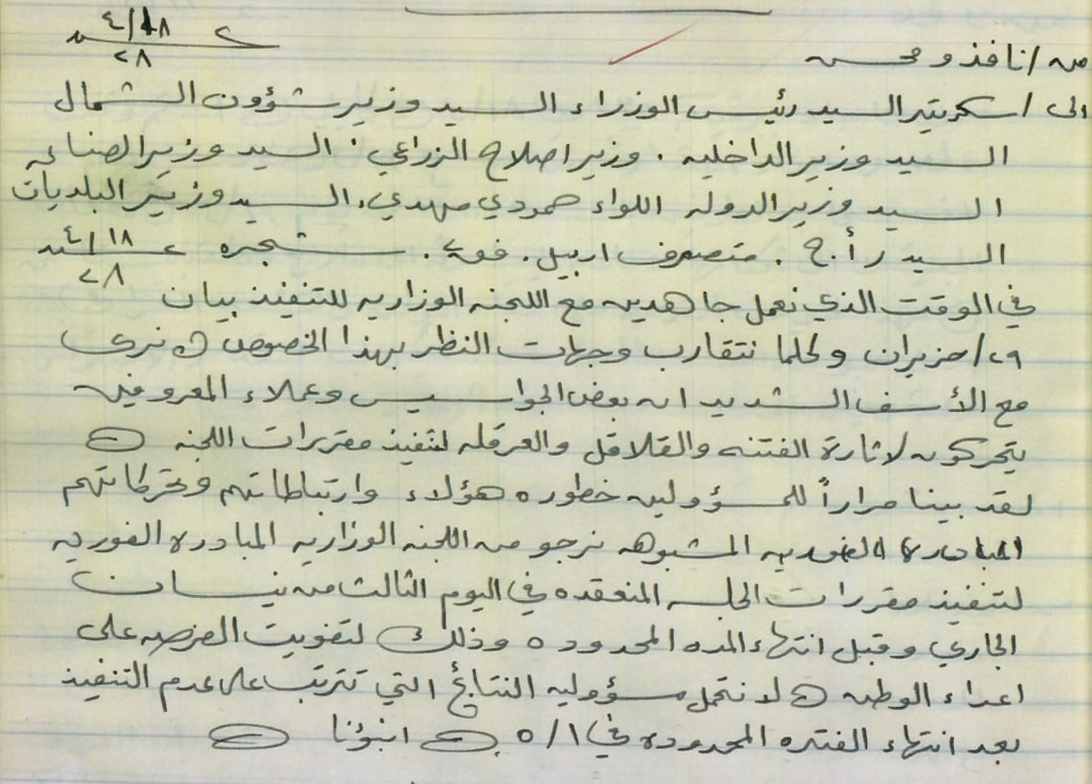 ١٨/٤
٢٨
من / نافذ و محسن
الى / سكرتير السيد رئيس الوزراء السيد وزير شؤون الشمال
السيد وزير الداخليه . وزير اصلاح الزراعي . السيد وزير الصناعه
السيد وزير الدوله اللواء حمودي مهدي . السيد وزير البلديات
السيد ر أ . ح . متصرف اربيل . ف٢ . شجره ١٨/٤
٢٨
في الوقت الذي نعمل جاهدين مع اللجنه الوزاريه للتنفيذ بيان
٢٩/حزيران ولكلما نتقارب وجهات النظر بهذا الخصوص نرى
مع الأسف الشديد ان بعض الجواسيس وعملاء المعروفين
يتحركون لاثارة الفتنه والقلاقل والعرقله لتنفيذ مقررات اللجنه
لقد بينا مراراً للمسؤولين خطوره هؤلاء وارتباطاتهم وتحركاتهم
المشبوهه نرجو من اللجنه الوزاريه المبادره الفوريه
لتنفيذ مقررات الجلسه المنعقده في اليوم الثالث من نيسان
الجاري وقبل انتهاء المده المحدوده وذلك لتفويت الفرصه على
اعداء الوطن لا نتحمل مسؤوليه النتائج التي تترتب على عدم التنفيذ
بعد انتهاء الفتره المحدوده في ٥/١ انبؤنا